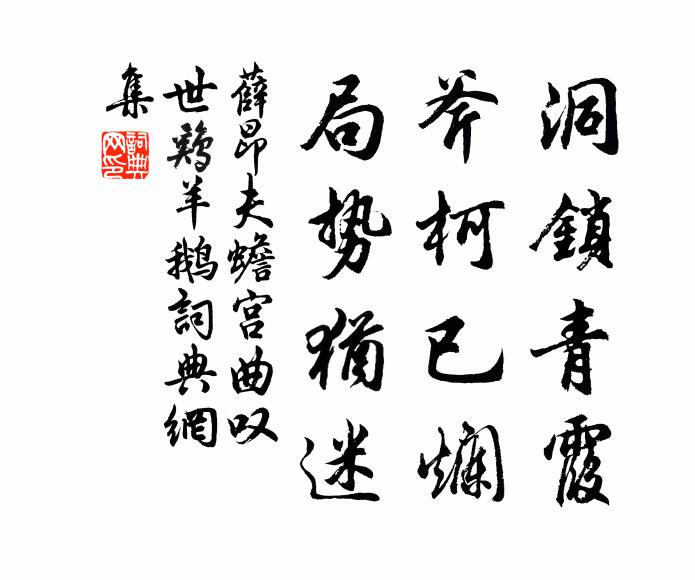 洞鎖青霞
斧柯已爛
局势猶迷
薛昂夫蟾宫曲叹
世鷄羊鵝詞典網
集
詞典
网印